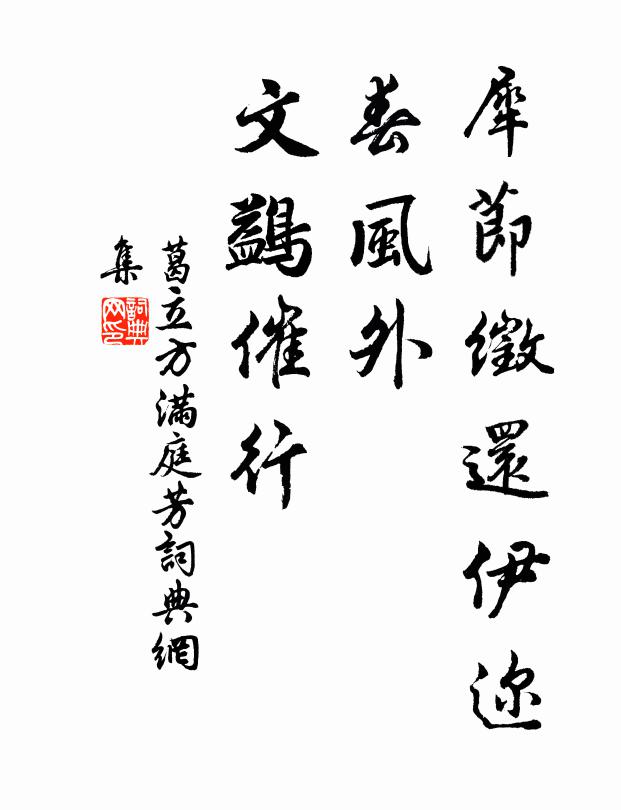 犀節徵還伊迩
春風外
文鷁催行
葛立方滿庭芳詞典網
集
詞典
网印